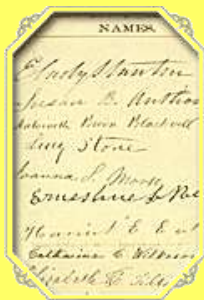 NAMES.
E. Cady Stanton
Susan B. Anthon
Antoinette Brown Blackwell
Lucy Stone
Joanna S. Morse
Ernestine L. Rose
Harriet E. Eat
Catharine C. Wilkeson
Elizabeth R. Tilt